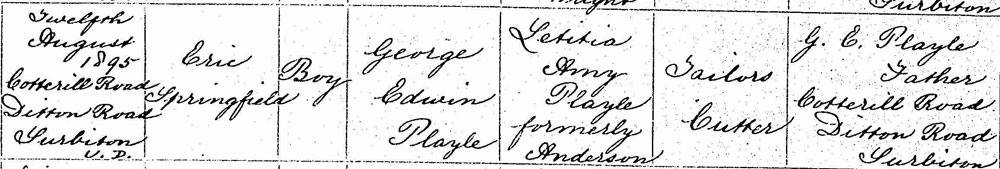 wright
Surbiton
Twelfth
August
1895
Cotterill Road
Ditton Road
Surbiton
U. D.
Eric
Springfield
Boy
George
Edwin
Playle
Letitia
Amy
Playle
formerly
Anderson
Tailors
Cutter
G. E. Playle
Father
Cotterill Road
Ditton Road
Surbiton